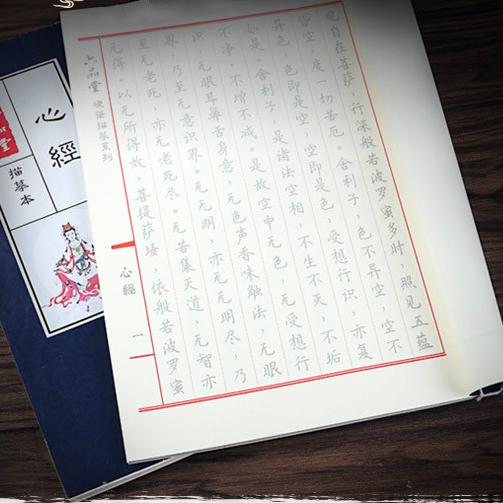 观自在菩萨，行深般若波罗蜜多时，照见五蕴
皆空，度一切苦厄。舍利子，色不异空，空不
异色，色即是空，空即是色，受想行识，亦复
如是。舍利子，是诸法空相，不生不灭，不垢
不净，不增不减。是故空中无色，无受想行
识，无眼耳鼻舌身意，无色声香味触法，无眼
界，乃至无意识界。无无明，亦无无明尽，乃
至无老死，亦无老死尽。无苦集灭道，无智亦
无得。以无所得故，菩提萨埵，依般若波罗蜜
六品堂 硬筆描摹系列
心經 一
心經
描摹本